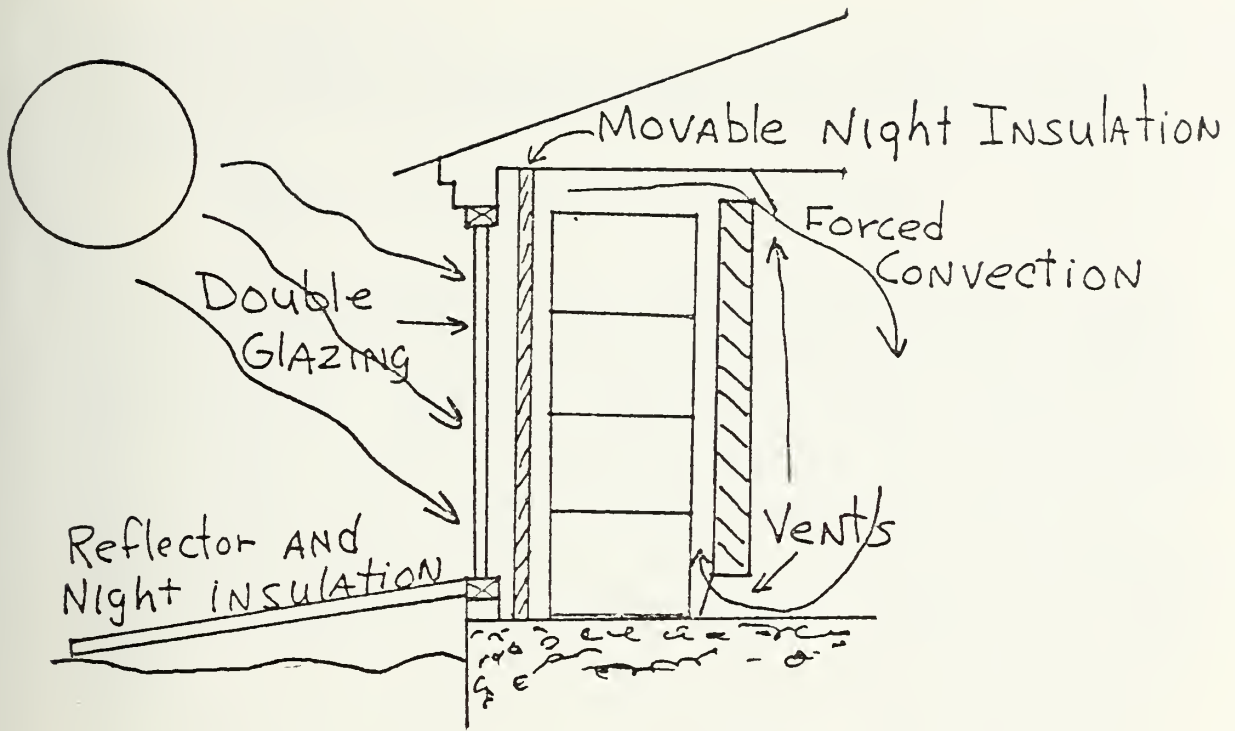 MOVABLE NIght INSULATION
Forced
CONVECTION
Double
GLAZING
Reflector AND
NIght INSULATION
VENTS